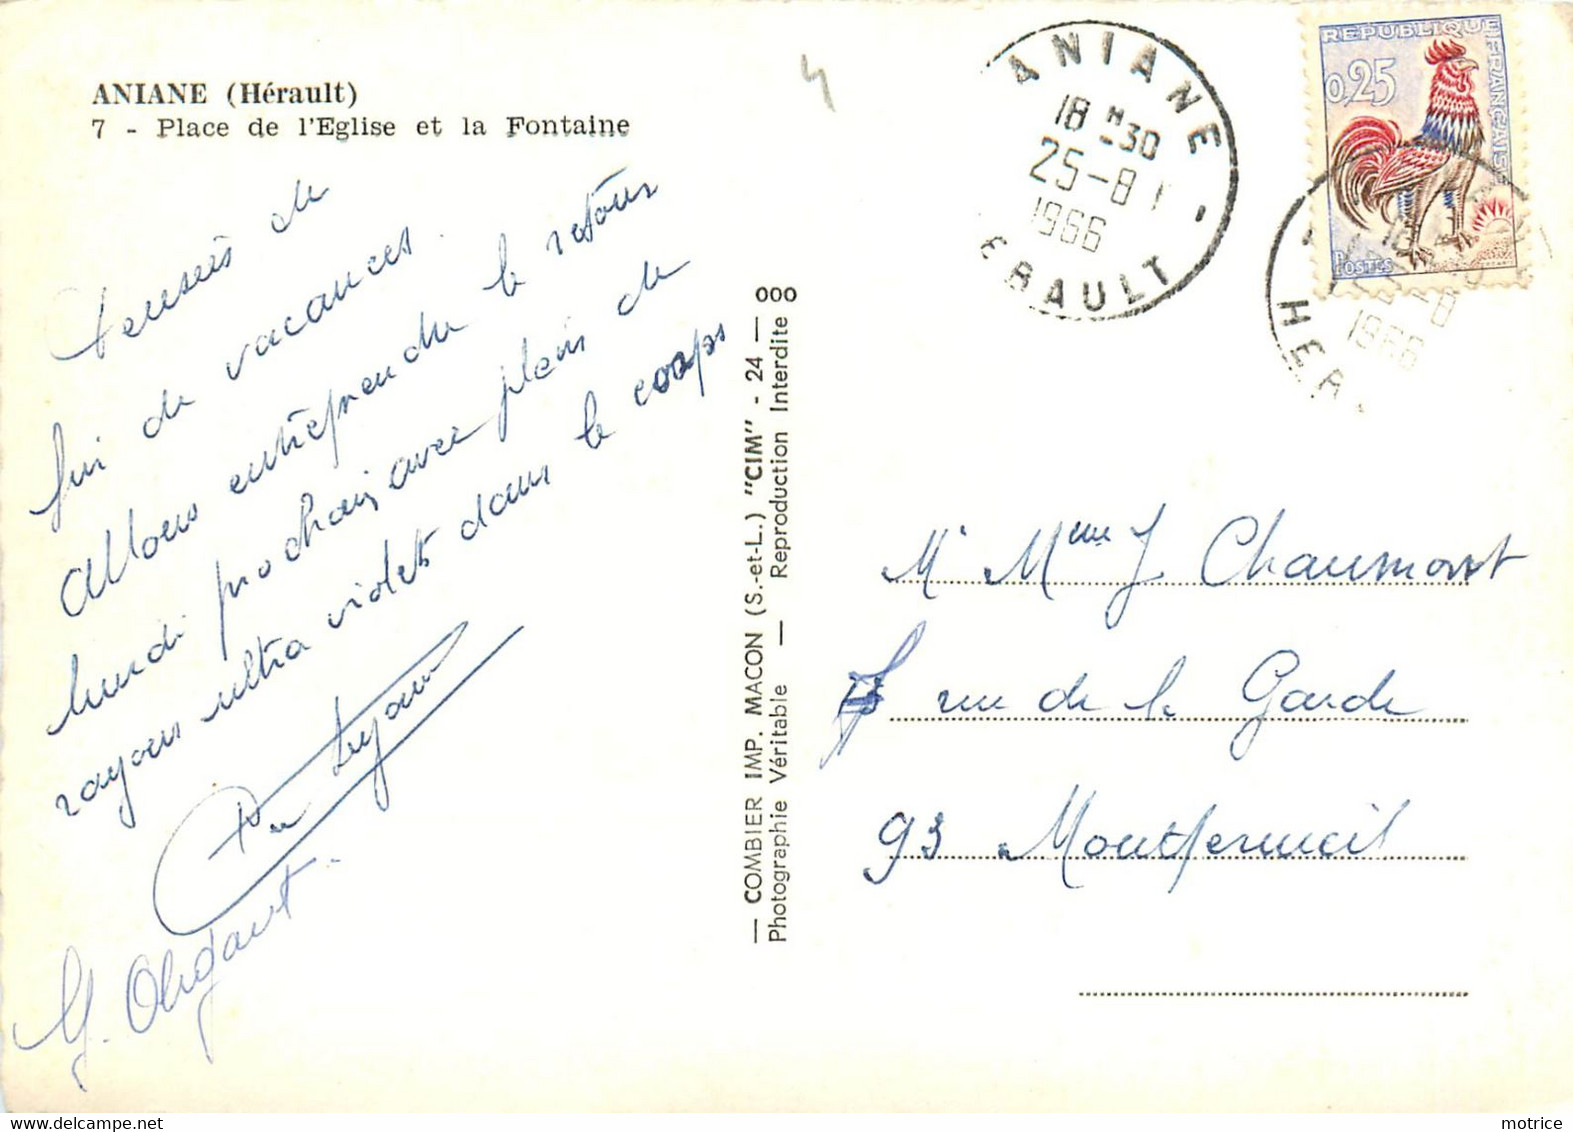 ANIANE (Hérault)
7 - Place de l'Eglise et la Fontaine
Pensées de
fin de vacances.
Allons entreprendre le retour
lundi prochain avec plein de
rayons ultra violets dans le corps
4
ANIANE
18 H 30
25-8
1966
ERAULT
REPUBLIQUE FRANÇAISE
0,25
POSTES
18
-8
1966
HER
— COMBIER IMP. MACON (S.-et-L.) "CIM" - 24 — 000
Photographie Véritable — Reproduction Interdite
Mr Mme J Chaumont
rue de la Garde
93 Montfermeil
motrice